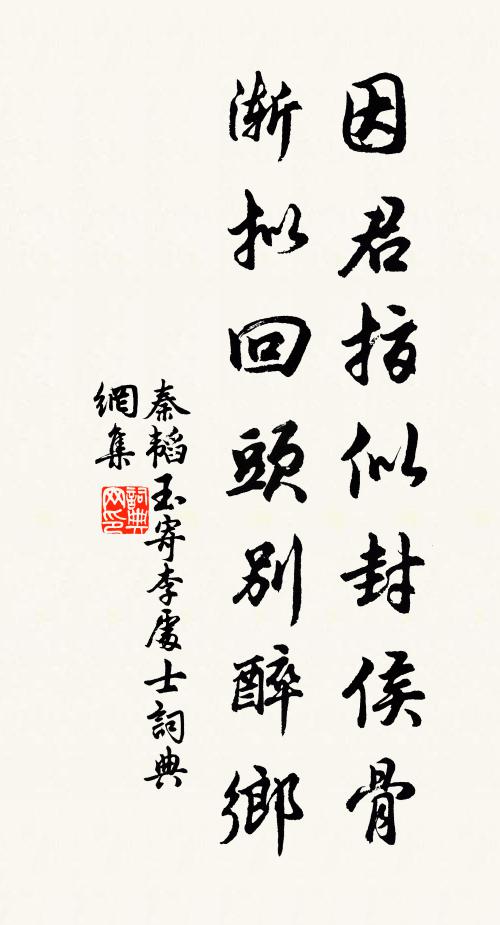 因君指似封侯骨
渐拟回頭別醉鄉
秦韜玉寄李處士詞典
網集
詞典
网印